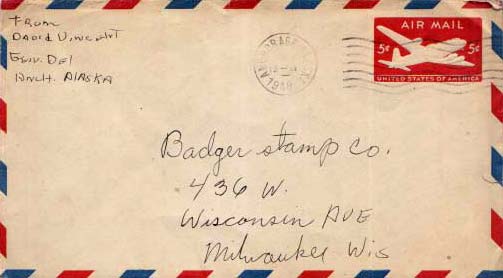 From
David Vincent
Gen. Del
Anch. Alaska
ANCHORAGE
1948
AIR MAIL
5¢ 5¢
UNITED STATES OF AMERICA
Badger Stamp Co.
436 W.
Wisconsin AVE
Milwaukee Wis